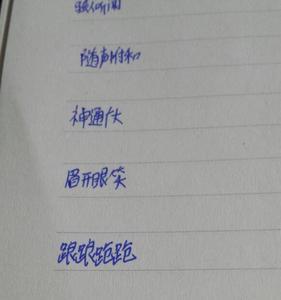 随声附和
神通广大
眉开眼笑
踉踉跄跄